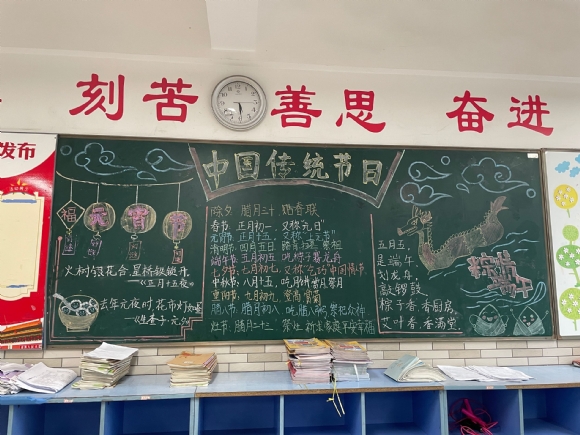 刻苦 善思 奋进
发布
中国传统节日
福元宵节
火树银花合,星桥铁锁开
《正月十五夜》
去年元夜时,花市灯如昼
《生查子·元夕》
除夕 腊月三十 贴春联
春节 正月初一 又称"元日"
元宵节 正月十五 又称"上元节"
清明节 四月五日 踏青扫墓 祭祖
端午节 五月初五 吃粽子赛龙舟
七夕节 七月初七 又称"乞巧"中国情节
中秋节 八月十五 吃月饼赏月
重阳节 九月初九 登高 赏菊
腊八节 腊月初八 吃腊八粥 祭祀众神
灶节 腊月二十三 祭灶
五月五,
是端午。
划龙舟,
敲锣鼓
粽子香,香厨房,
艾叶香,香满堂。
粽情端午